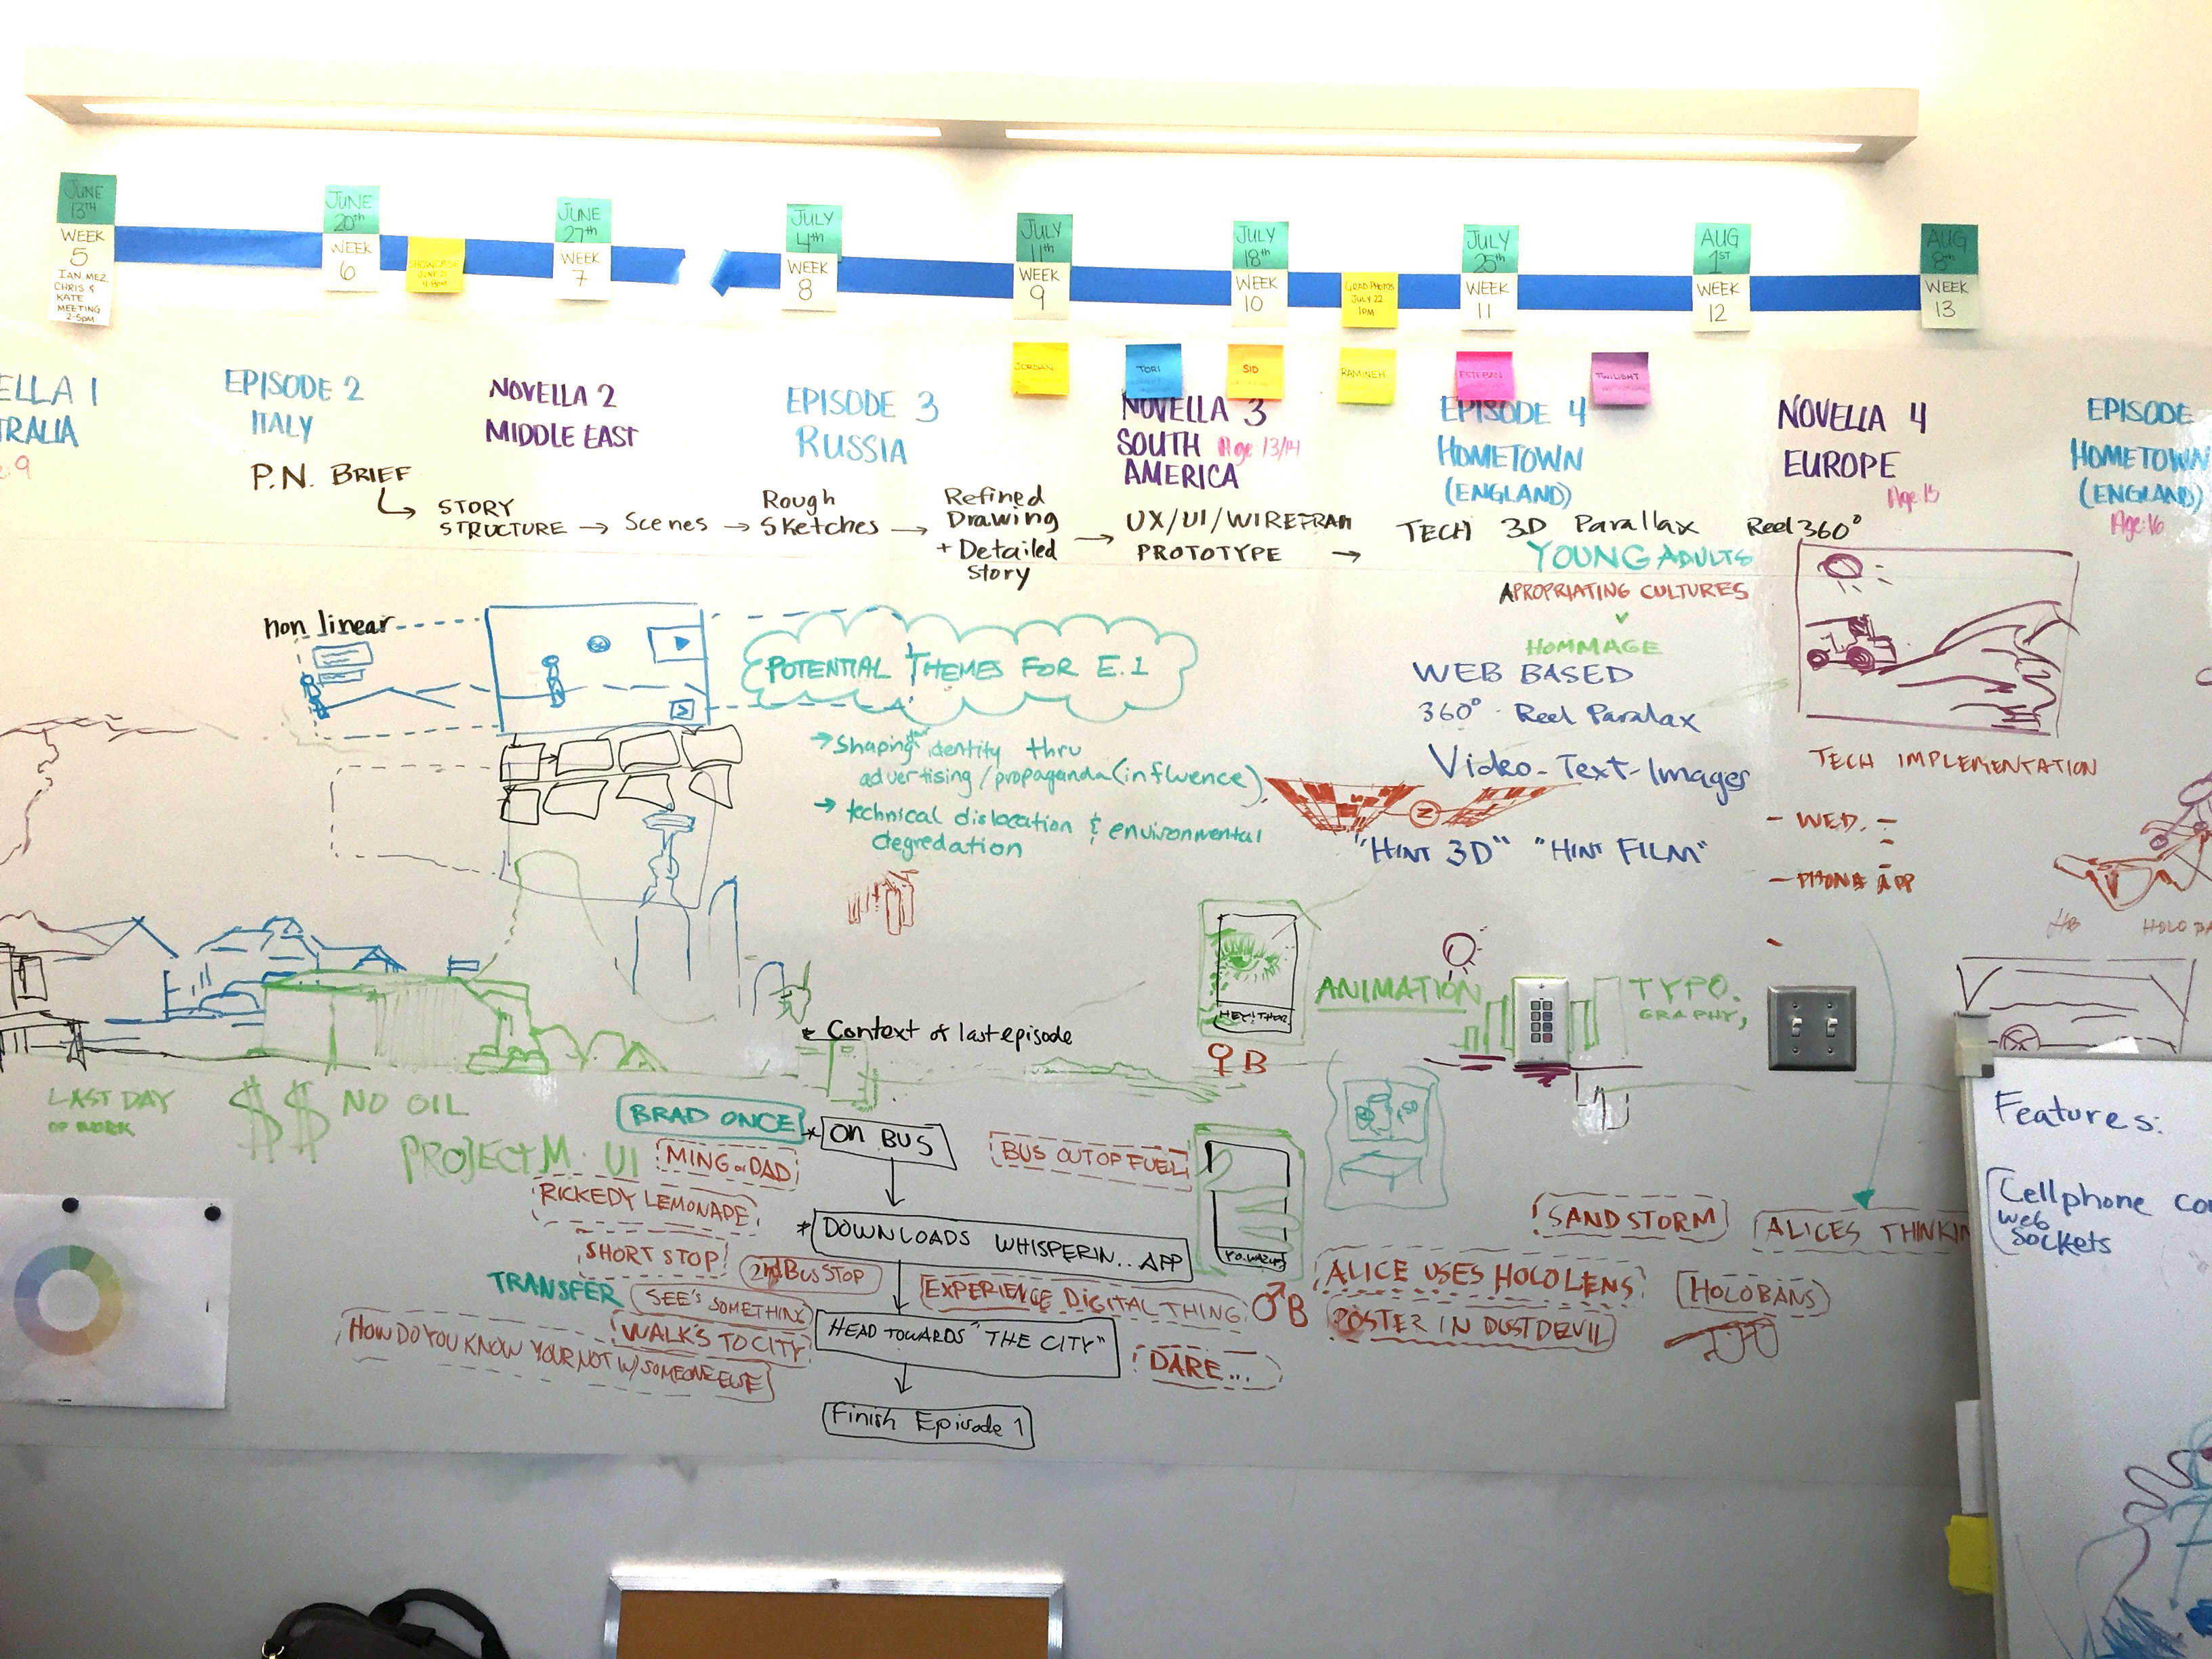 JUNE
13TH
WEEK
5
IAN MEZ,
CHRIS &
KATE
MEETING
2-5PM
JUNE
20th
WEEK
6
SHOWCASE
JUNE 23
JUNE
27th
WEEK
7
JULY
4th
WEEK
8
JULY
11th
WEEK
9
JULY
18th
WEEK
10
GRAD PHOTOS
JULY 22
1PM
JULY
25th
WEEK
11
AUG
1ST
WEEK
12
AUG
8th
WEEK
13
JORDAN
TORI
SID
RAMINEH
ESTEBAN
TWILIGHT
ELLA 1
TRALIA
9
EPISODE 2
ITALY
NOVELLA 2
MIDDLE EAST
EPISODE 3
RUSSIA
NOVELLA 3
SOUTH Age 13/14
AMERICA
EPISODE 4
HOMETOWN
(ENGLAND)
NOVELLA 4
EUROPE
Age 15
EPISODE
HOMETOWN
(ENGLAND)
Age 16
P.N. BRIEF
STORY
STRUCTURE → Scenes →
Rough
Sketches →
Refined
Drawing
+ Detailed
Story →
UX/UI/WIREFRAM
PROTOTYPE →
TECH 3D Parallax Reel 360°
YOUNG ADULTS
APROPRIATING CULTURES
HOMMAGE
WEB BASED
360° Reel Paralax
Video-Text-Images
"HINT 3D" "HINT FILM"
TECH IMPLEMENTATION
- WED. -
- PHONE APP
non linear
POTENTIAL THEMES FOR E.1
→ Shaping identity thru
advertising/propaganda (influence)
→ technical dislocation & environmental
degredation
Z
HB
HOLO BA
HEY! THER
♀ B
ANIMATION
TYPO.
GRAPHY,
Context of last episode
LAST DAY
OF WORK
$$ NO OIL
PROJECT M. UI
BRAD ONCE
* ON BUS
MING or DAD
BUS OUT OF FUEL
RICKEDY LEMONADE
* DOWNLOADS WHISPERIN.. APP
SHORT STOP
2nd BUS STOP
TRANSFER
SEE'S SOMETHING
EXPERIENCE DIGITAL THING
♂ B
WALK'S TO CITY
HEAD TOWARDS "THE CITY"
HOW DO YOU KNOW YOUR NOT W/ SOMEONE ELSE
DARE...
Finish Episode 1
SANDSTORM
ALICES THINKIN
ALICE USES HOLOLENS
HOLOBANS
POSTER IN DUST DEVIL
Features:
Cellphone co
web
sockets